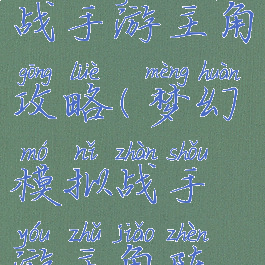 战手游主角
gōng lüè mèng huàn
攻略(梦幻
mó nǐ zhàn shǒu
模拟战手
yóu zhǔ jiǎo zhèn
游主角阵